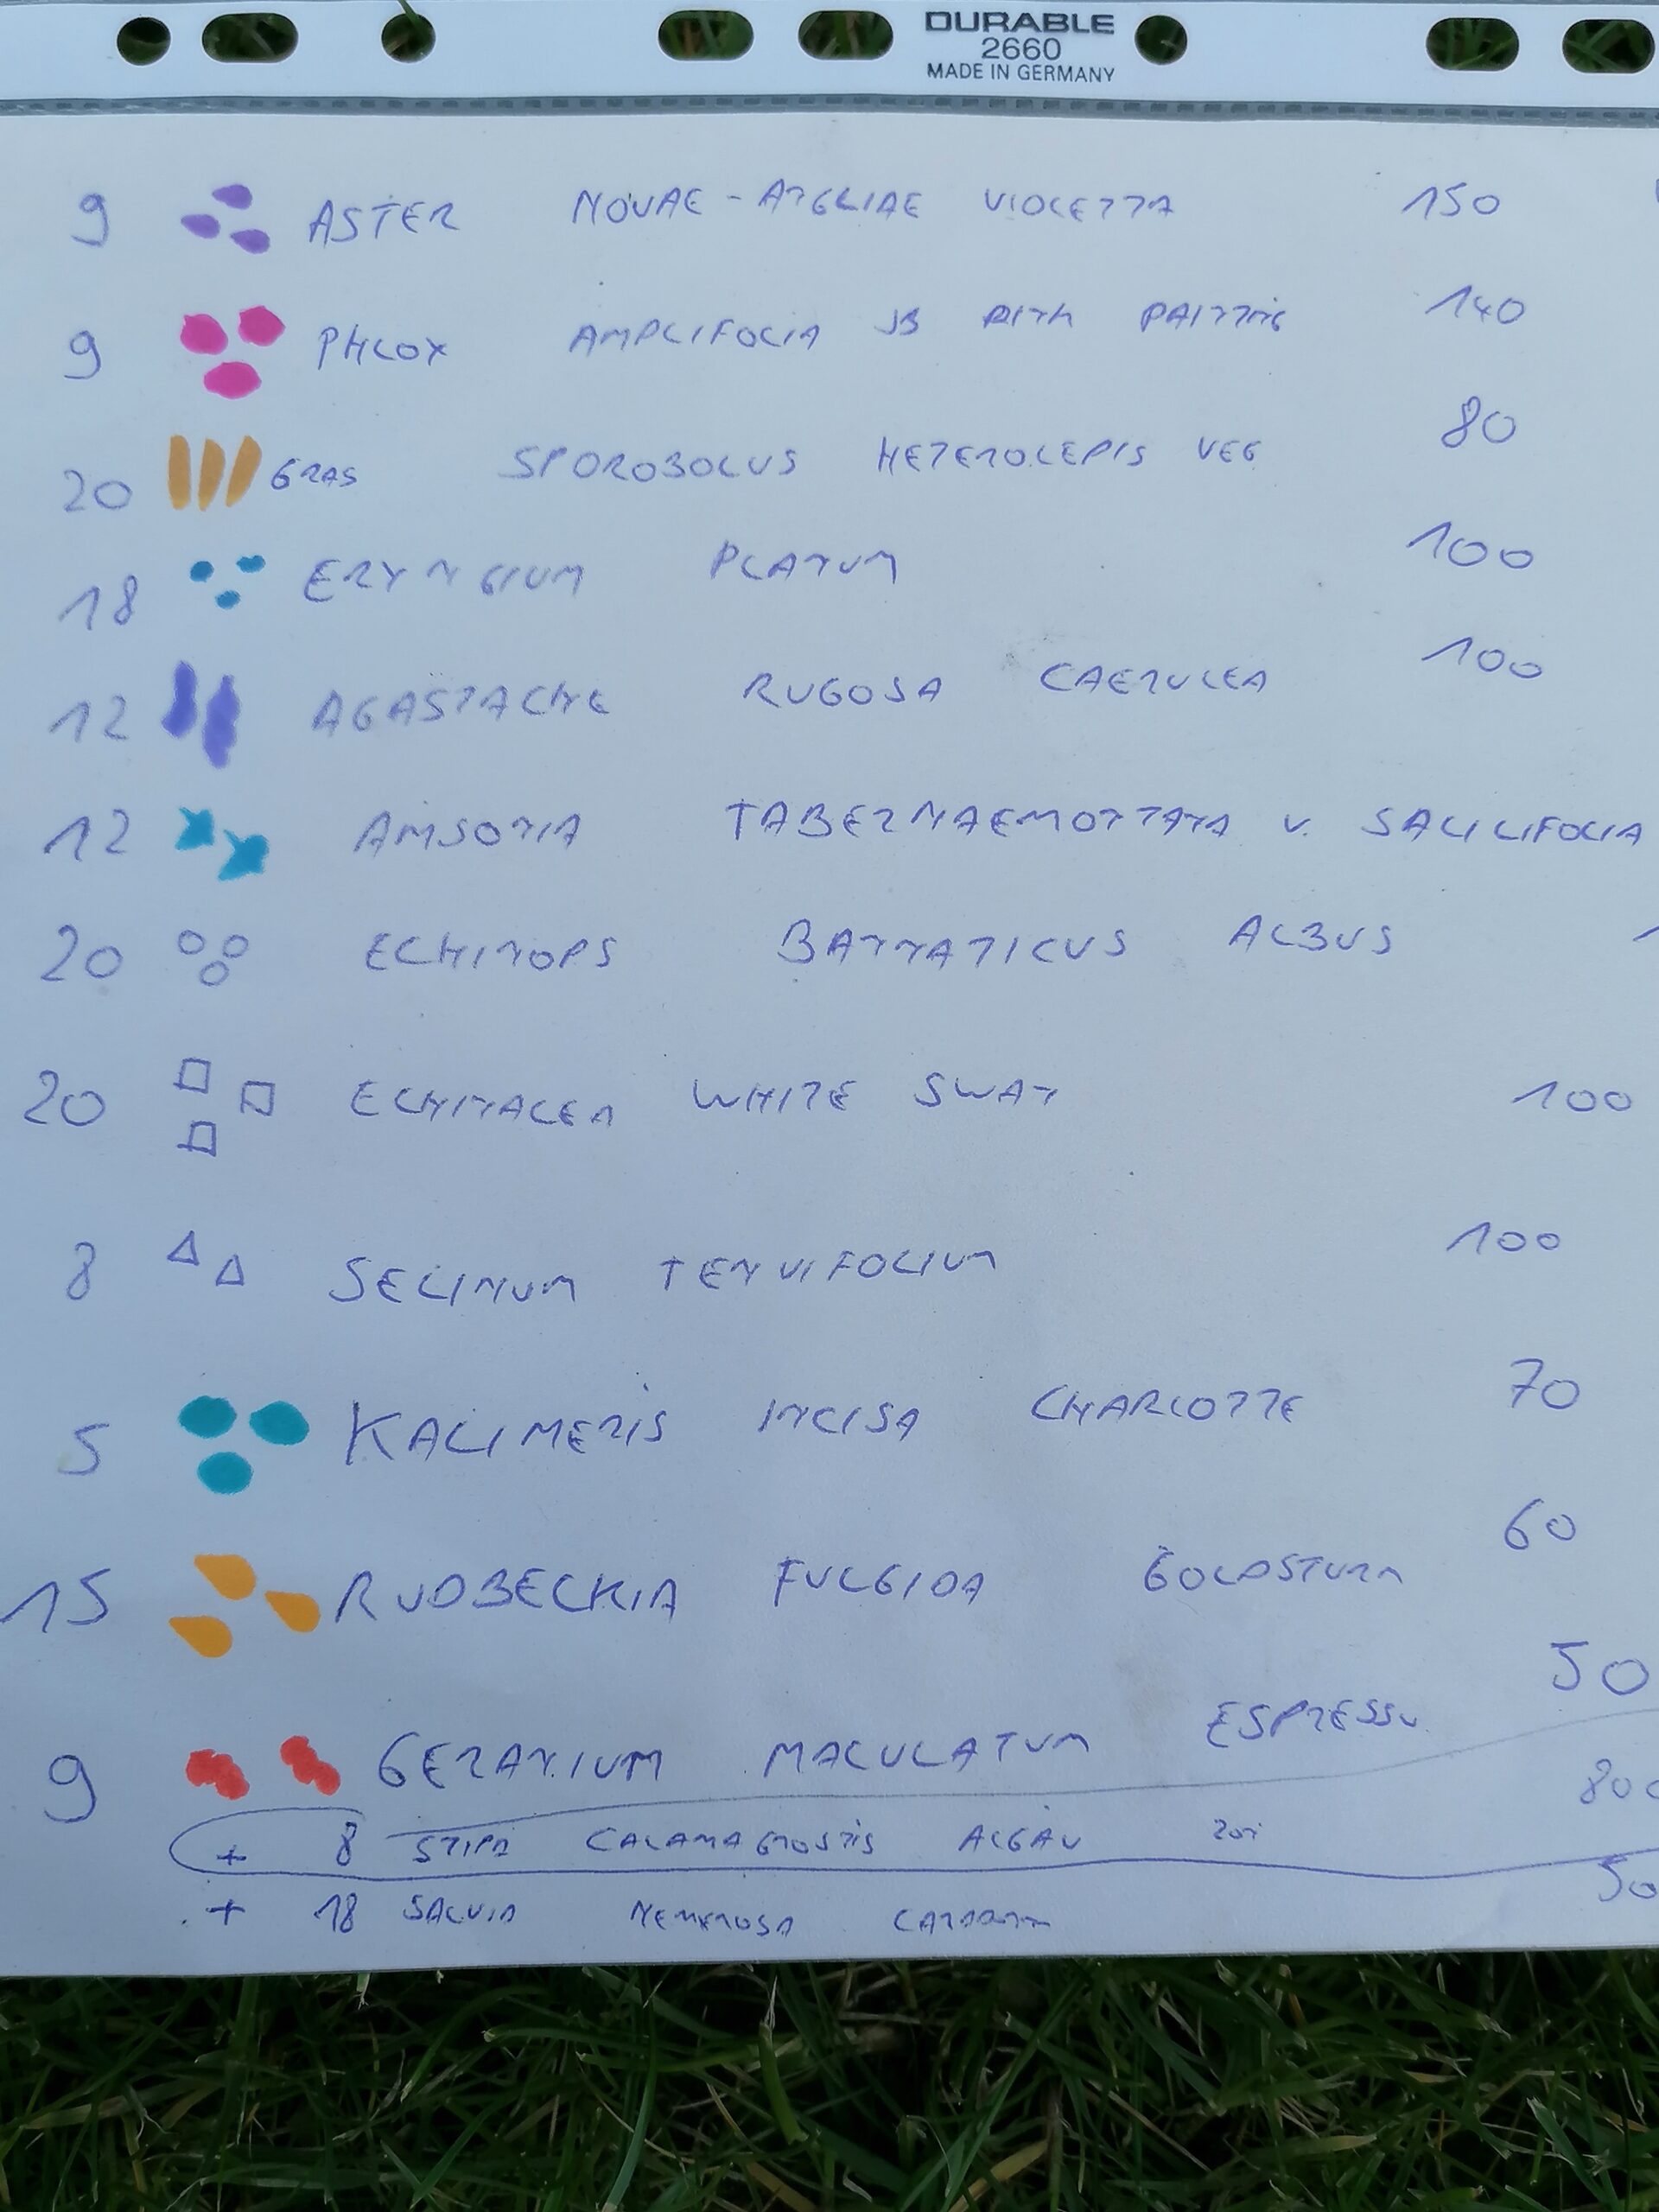 DURABLE
2660
MADE IN GERMANY
9 ASTER NOVAE-ANGLIAE VIOLETTA 150
9 PHLOX AMPLIFOLIA PINK 140
20 GRAS SPOROBOLUS HETEROLEPIS VEG 80
18 ERYNGIUM PLANUM 100
12 AGASTACHE RUGOSA CAERULEA 100
12 AMSONIA TABERNAEMONTANA V. SALICIFOLIA
20 ECHINOPS BANNATICUS ALBUS
20 ECHINACEA WHITE SWAN 100
8 SELINUM TENUIFOLIUM 100
5 KALIMERIS INCISA CHARLOTTE 70
15 RUDBECKIA FULGIDA GOLDSTURM 60
9 GERANIUM MACULATUM ESPRESSO 50
+ 8 STIPA CALAMAGROSTIS ALGÄU 80
+ 18 SALVIA NEMEROSA 50